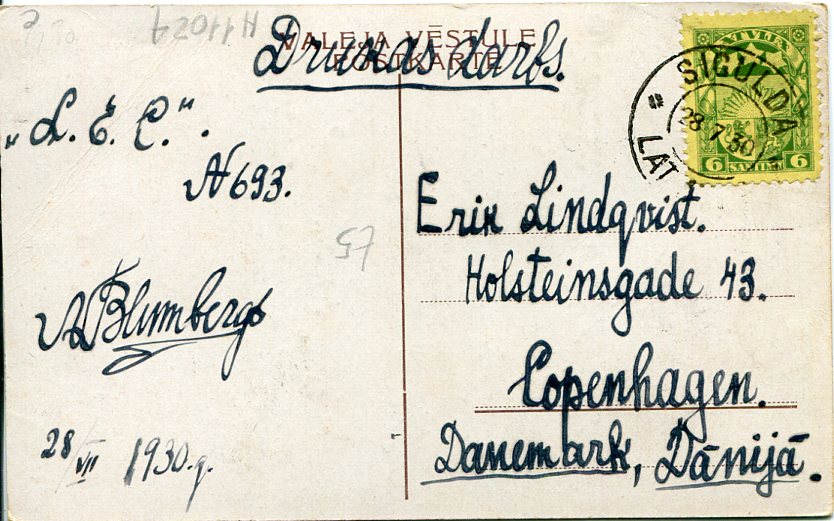 H11027
VAĻEJA VĒSTULE
POSTKARTE
Drukas darbs.
LATVIJA
6 SANTIMI 6
SIGULDA
28 7 30
LAT
„L. E. C.“.
N 693.
Erik Lindqvist.
Holsteinsgade 43.
Copenhagen.
Danemark, Dānijā.
A Blumbergs
28/VII 1930.g.